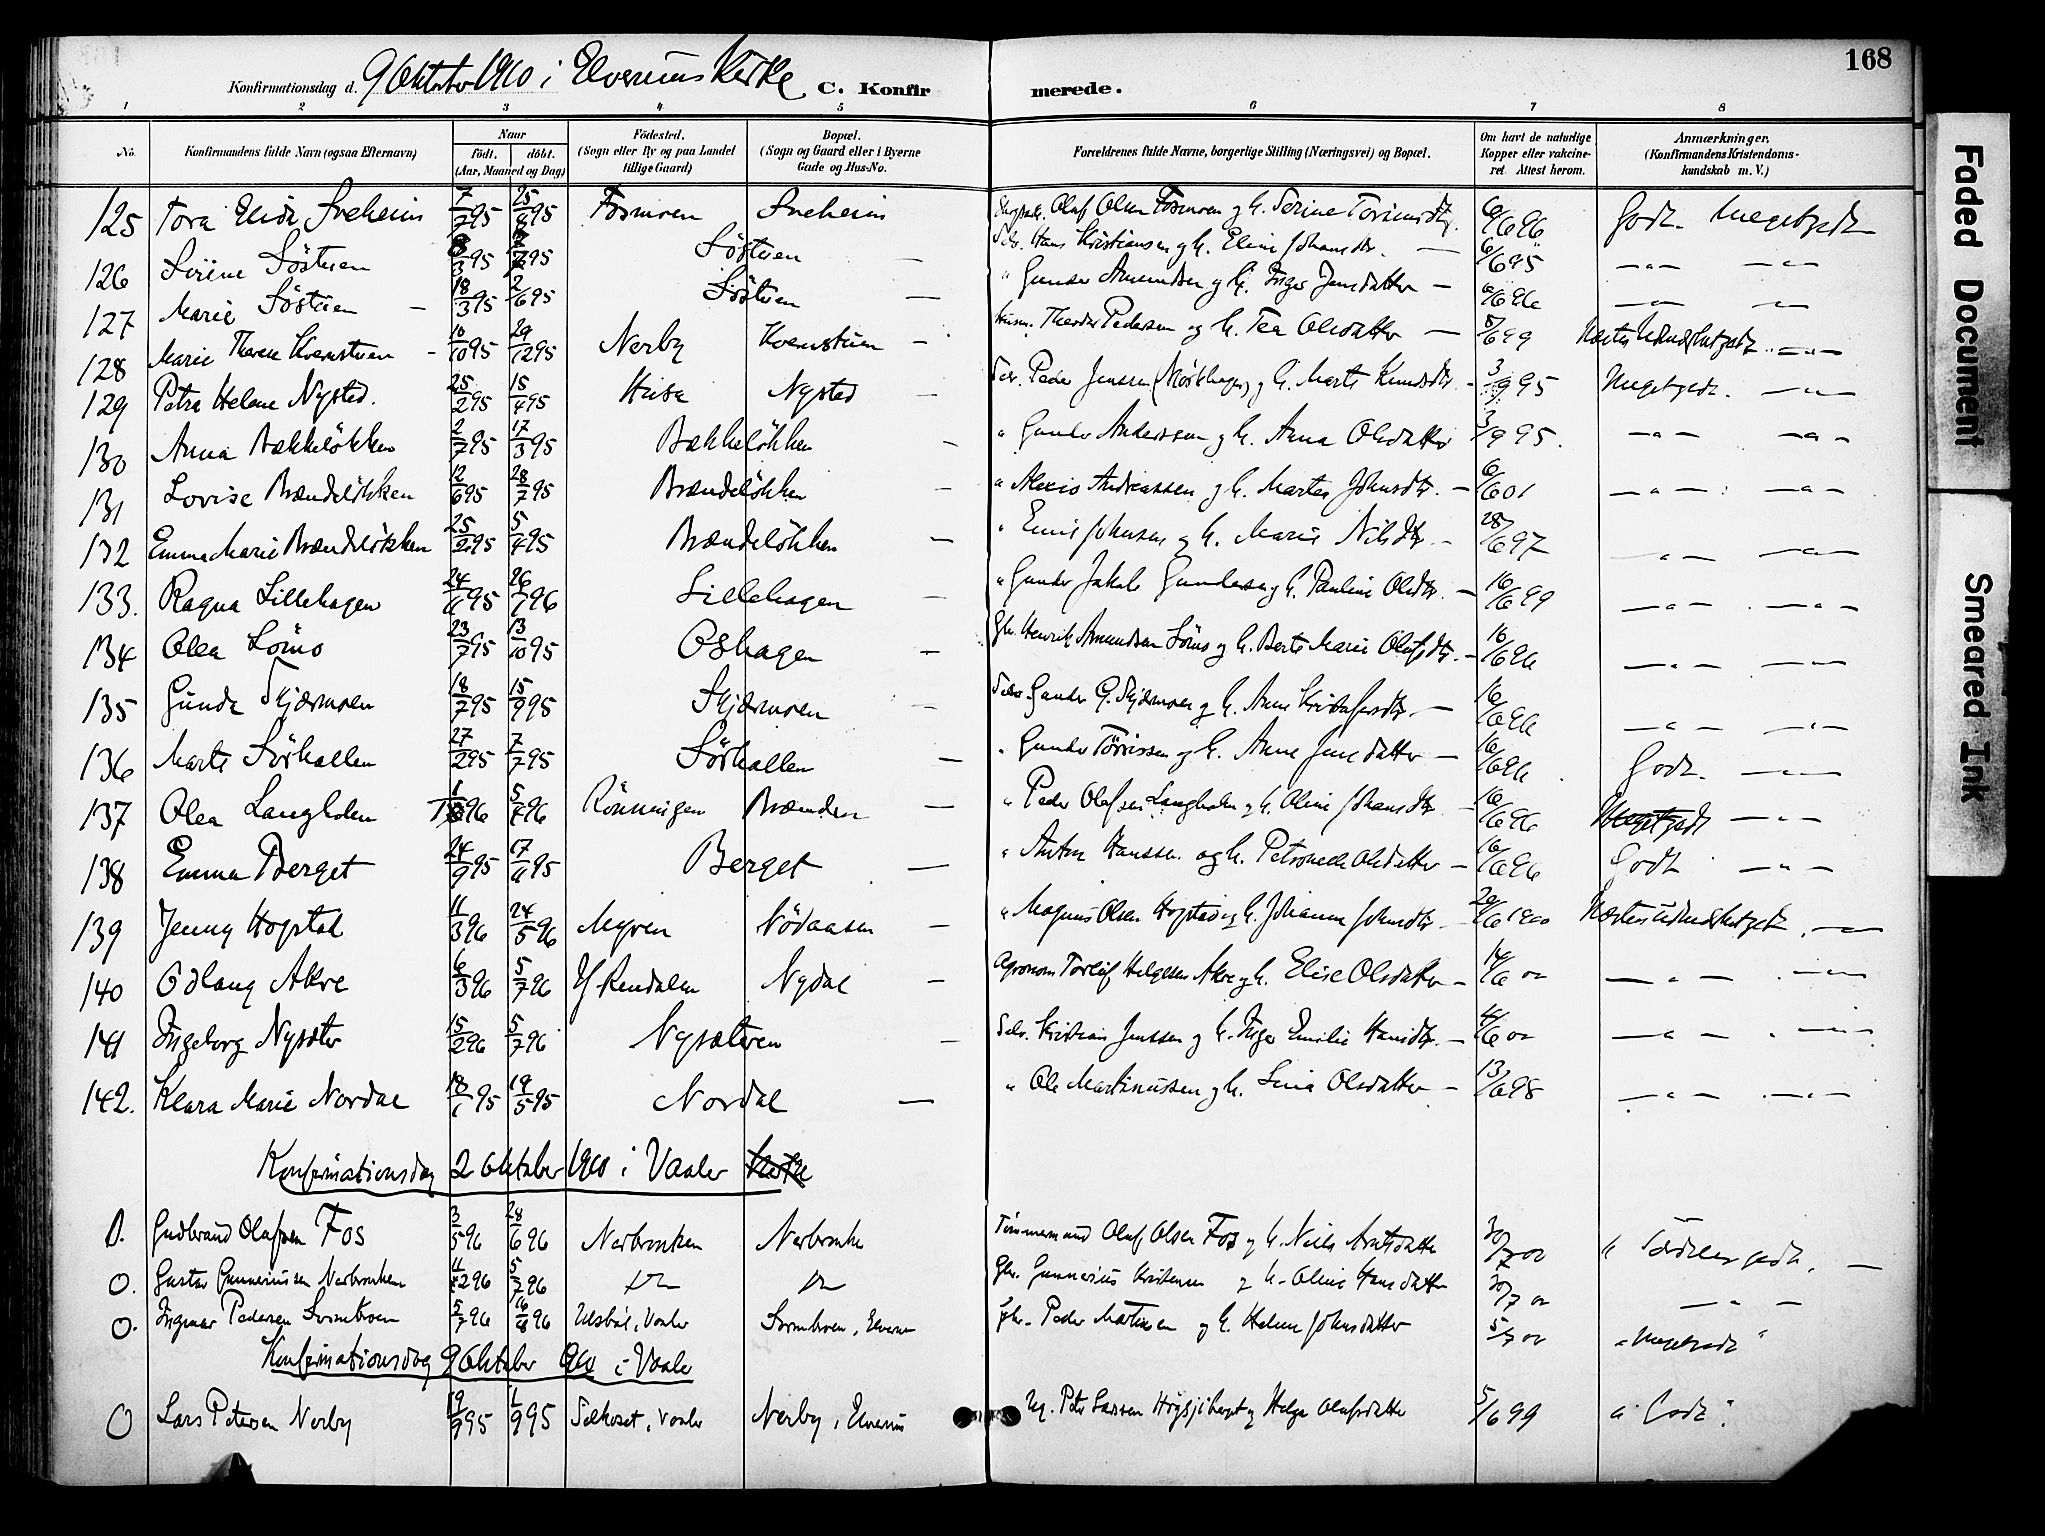 168
Konfirmationsdag d. 9 Oktober 1910 i Elverums Kirke C. Konfirmerede.
1 2 3 4 5 6 7 8
No. Konfirmandens fulde Navn (ogsaa Efternavn) Naar født, døbt. (Aar, Maaned og Dag) Födested. (Sogn eller By og paa Landet tillige Gaard) Bopæl. (Sogn og Gaard eller i Byerne Gade og Hus-No. Forældrenes fulde Navne, borgerlige Stilling (Næringsvei) og Bopæl. Om havt de naturlige Kopper eller vakcineret. Attest herom. Anmærkninger. (Konfirmandens Kristendomskundskab m. V.)
125 Tora Elida Sveheim 7/7 95 25/8 95 Fosmoen Sveheim Olaf Olsen Fosmoen og h. Serine 6/6 96 Godt. Megetgodt
126 Sörine Söstuen 95 95 Söstuen — Hans Kristiansen og h. Eline Johansdtr. — 6/6 95 — " — — " —
127 Marie Söstuen — 18/3 95 2/6 95 Söstuen — " Gunder Amundsen og h. Inger Jensdatter — 6/6 96 — " — — " —
128 Marie Therese Kvernstuen - 10/10 95 29/12 95 Nerby Kvernstuen — Theodor Pedersen og h. Tea Olsdatter — 8/6 99 — " —
129 Petra Helene Nysted. 25/2 95 15/4 95 Husa Nysted — Peder Jenssen og h. Marte Knudsdtr. - 3/9 95 Megetgodt. — " —
130 Anna Bækkeløkken 2/7 95 17/3 95 Bækkeløkken — " Gunder Anderssen og h. Anna Olsdatter 3/9 95. — " — — " —
131 Lovise Brændeløkken 12/6 95 28/7 95 Brændeløkken — " Alexis Andreassen og h. Martea Johnsdtr. — 6/6 01 — " — — " —
132 Emma Marie Brændeløkken 25/2 95 5/4 95 Brændeløkken — " Emil Johnsen og h. Marie Nilsdtr. — 28/6 97 — " — — " —
133. Ragna Lillehagen 24/11 95 26/1 96 Lillehagen — " Gunder Jakob Gundersen og h. Pauline Olsdtr. — 16/6 99 — " — — " —
134 Olea Lömo 23/7 95 13/10 95 Oshagen — Henrik Amundsen Lömo og h. Berte Marie Olafsdtr. — 16/6 96 — " — — " —
135 Gunda Skjærmoen 18/7 95 15/9 95 Skjærmoen — Gunder G. Skjærmoen og h. Anne Kristofersdtr. — 16/6 96 — " — — " —
136 Marte Sörhallen 27/2 95 7/7 95 Sörhallen — " Gunder Törrissen og h. Anne Jensdatter — 16/6 96 Godt. — " —
137 Olea Langholen 96 96 Rönningen Brænden — " Peder Olafsen Langholen og h. Oline Johansdtr. — 16/6 96 Megetgodt — " —
138 Emma Berget 24/9 95 17/11 95 Berget — " Anton Hanssen og h. Petronelle Olsdatter — 16/6 96 Godt — " —
139 Jenny Hogstad 11/3 96 24/5 96 Myren Nödaasen — " Magnus Olsen Hogstad og h. Johanne Johnsdtr. — 20/6 1900 — " —
140 Odlaug Akre 6/3 96 5/7 96 Y. Rendalen Nydal — Agronom Torleif Helgesen Akre og h. Elise Olsdatter — 14/6 00 — " — — " —
141 Ingeborg Nysæter 15/2 96 5/7 96 Nysæteren — Kristian Jenssen og h. Inger Emilie Hansdtr. — 4/6 00 — " — — " —
142. Klara Marie Nordal 18/1 95 19/5 95 Nordal — " Ole Martinussen og h. Lina Olsdatter — 13/6 98 — " — — " —
Konfirmationsdag 2 Oktober 1910 i Vaaler Kirke
0. Gudbrand Olafsen Fos 3/5 96 28/6 96 Nerbronken Nerbronken Tömmermand Olaf Olsen Fos og h. 30/7 00 —
0. Gustav Gunneriussen Nerbronken 96 5/7 96 Do Do Gbr. Gunnerius Kristensen og h. Oline Hansdatter 30/7 00 — " —
0. Ingmar Pedersen 5/7 96 16/8 96 Vaaler Elverum Gbr. Peder Martinsen og h. Helene Johnsdatter 5/7 00 " Megetgodt "
Konfirmationsdag 9 Oktober 1910 i Vaaler
0 Lars Petersen Nerby 19/9 95 95 Vaaler Nerby, Elverum Peter Larssen og Helga Olafsdatter 5/6 99 " Godt "
Faded Document
Smeared Ink